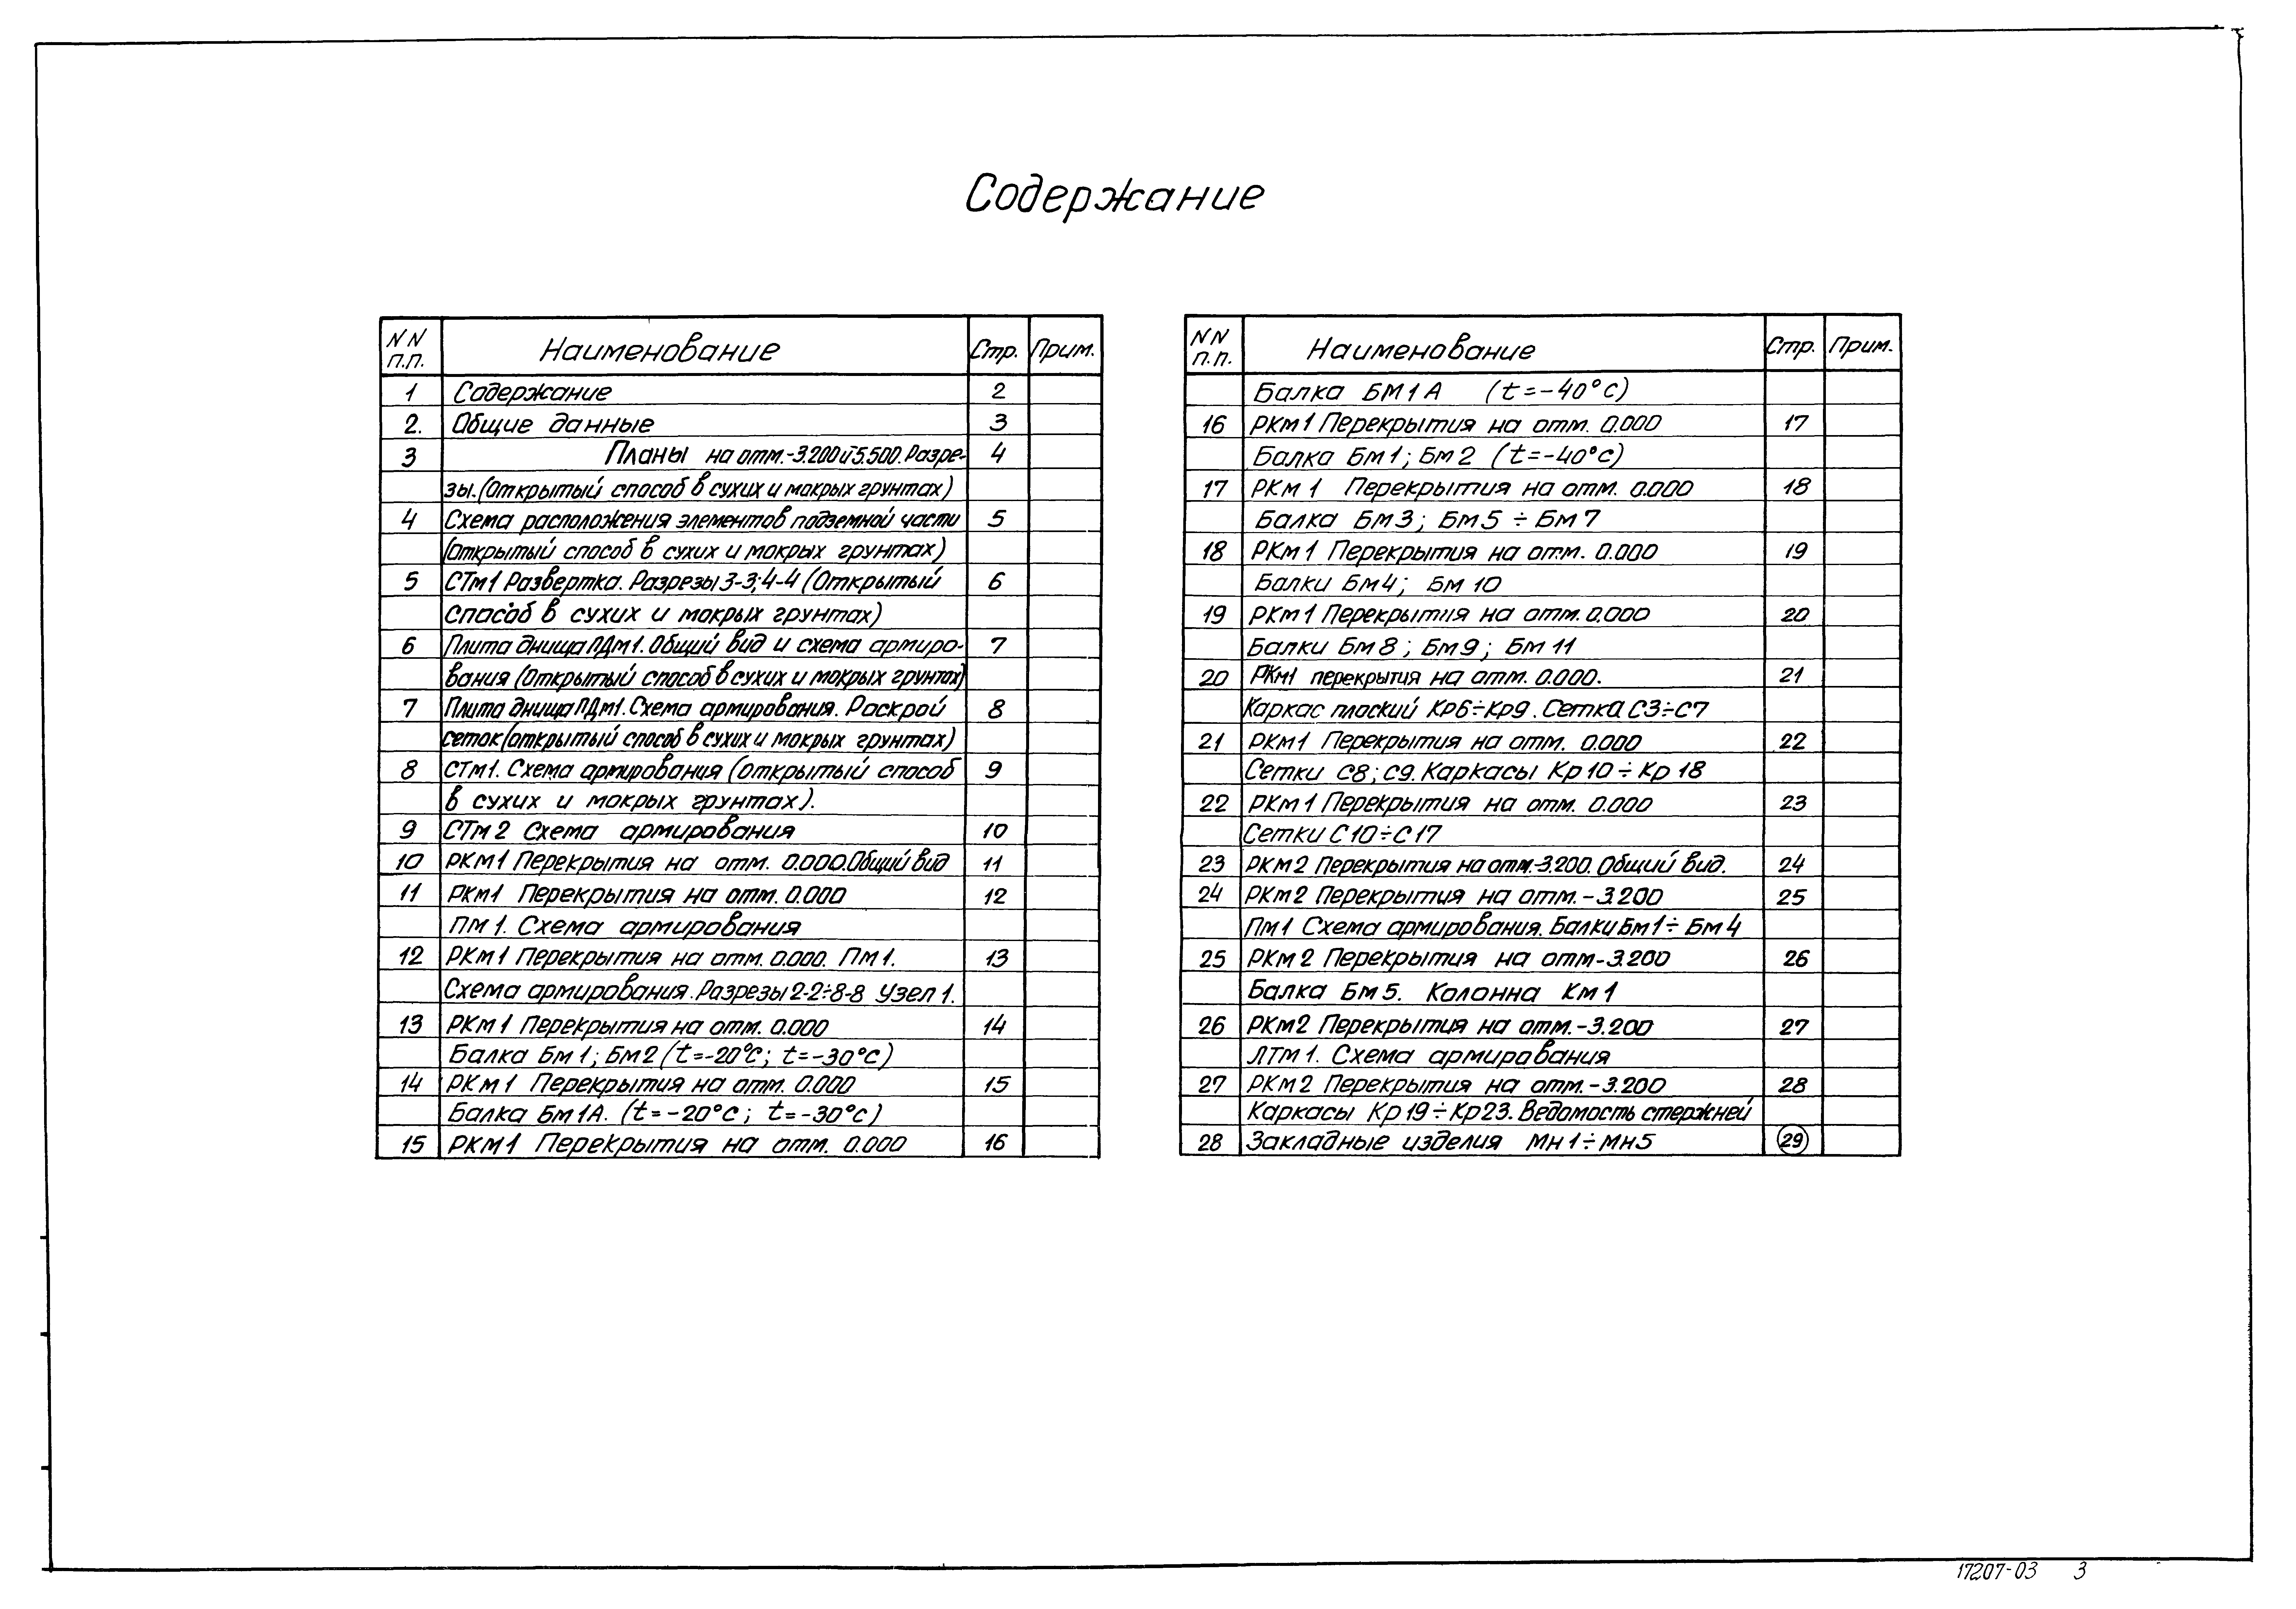 Содержание
NN п.п. Наименование Стр. Прим.
1 Содержание 2
2. Общие данные 3
3 Планы на отм.-3.200 и 5.500. Разре- 4
зы. (Открытый способ в сухих и мокрых грунтах)
4 Схема расположения элементов подземной части 5
(открытый способ в сухих и мокрых грунтах)
5 СТм1 Развертка. Разрезы 3-3; 4-4 (Открытый 6
способ в сухих и мокрых грунтах)
6 Плита днища ПДм1. Общий вид и схема армиро- 7
вания (Открытый способ в сухих и мокрых грунтах)
7 Плита днища ПДм1. Схема армирования. Раскрой 8
сеток (открытый способ в сухих и мокрых грунтах)
8 СТм1. Схема армирования (открытый способ 9
в сухих и мокрых грунтах).
9 СТм 2 Схема армирования 10
10 РКм1 Перекрытия на отм. 0.000. Общий вид 11
11 РКм1 Перекрытия на отм. 0.000 12
Пм 1. Схема армирования
12 РКм1 Перекрытия на отм. 0.000. Пм1. 13
Схема армирования. Разрезы 2-2÷8-8 Узел 1.
13 РКм1 Перекрытия на отм. 0.000 14
Балка Бм 1; Бм2 (t=-20°с; t=-30°с)
14 РКм1 Перекрытия на отм. 0.000 15
Балка Бм1А. (t=-20°с; t=-30°с)
15 РКм1 Перекрытия на отм. 0.000 16
NN п.п. Наименование Стр. Прим.
Балка БМ1А (t=-40°с)
16 РКм1 Перекрытия на отм. 0.000 17
Балка Бм1; Бм2 (t=-40°с)
17 РКм 1 Перекрытия на отм. 0.000 18
Балка Бм3; Бм5 ÷ Бм7
18 РКм1 Перекрытия на отм. 0.000 19
Балки Бм4; Бм 10
19 РКм1 Перекрытия на отм. 0.000 20
Балки Бм8; Бм9; Бм 11
20 РКм1 перекрытия на отм. 0.000. 21
Каркас плоский Кр6÷Кр9. Сетка С3÷С7
21 РКм1 Перекрытия на отм. 0.000 22
Сетки С8; С9. Каркасы Кр10 ÷ Кр 18
22 РКм1 Перекрытия на отм. 0.000 23
Сетки С10÷С17
23 РКм2 Перекрытия на отм.-3.200. Общий вид. 24
24 РКм2 Перекрытия на отм.-3.200 25
Пм1 Схема армирования. Балки Бм1 ÷ Бм 4
25 РКм 2 Перекрытия на отм-3.200 26
Балка Бм5. Колонна Км1
26 РКм2 Перекрытия на отм.-3.200 27
ЛТм1. Схема армирования
27 РКм2 Перекрытия на отм.-3.200 28
Каркасы Кр19÷Кр23. Ведомость стержней
28 Закладные изделия Мн1÷Мн5 29
17207-03 3